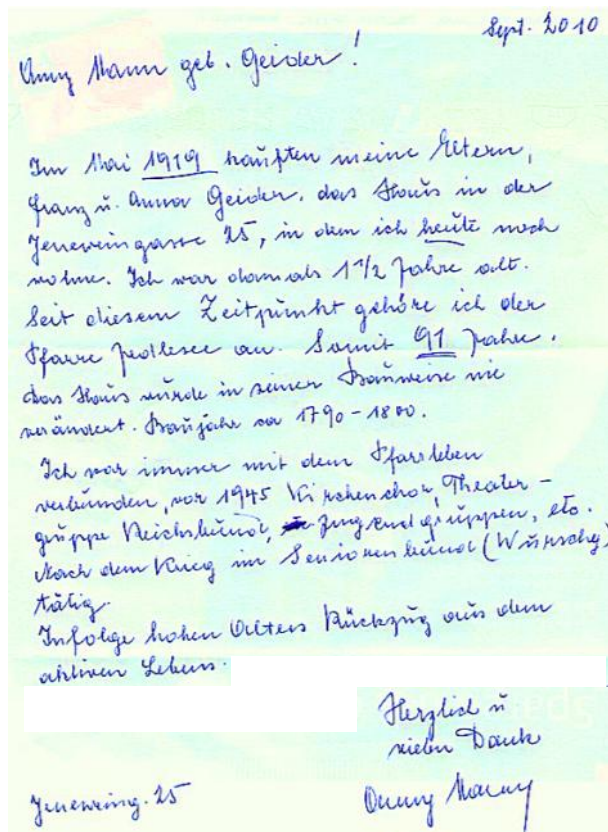 Sept. 2010
Anny Mann geb. Geider!
Im Mai 1919 kauften meine Eltern,
Franz u. Anna Geider, das Haus in der
Jeneweingasse 25, in dem ich heute noch
wohne. Ich war damals 1 1/2 Jahre alt.
Seit diesem Zeitpunkt gehöre ich der
Pfarre Jedlesee an. Somit 91 Jahre.
das Haus wurde in seiner Bauweise nie
verändert. Baujahr ca 1790 - 1800.
Ich war immer mit dem Pfarrleben
verbunden, vor 1945 Kirchenchor, Theater -
gruppe Reichsbund, Jugendgruppen, etc.
Nach dem Krieg im Seniorenbund (Wurschy)
tätig.
Infolge hohen Alters Rückzug aus dem
aktiven Lebens.
Herzlich u
vielen Dank
Jeneweing. 25
Anny Mann